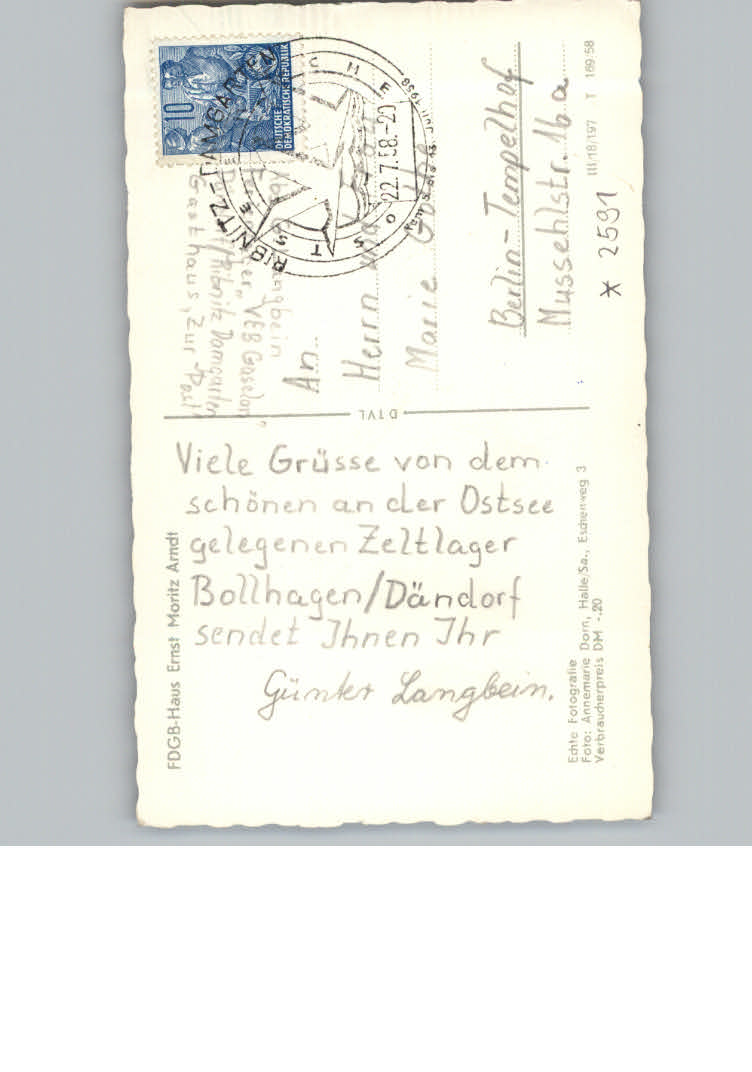 FDGB-Haus Ernst Moritz Arndt
Viele Grüsse von dem
schönen an der Ostsee
gelegenen Zeltlager
Bollhagen/Dändorf
sendet Ihnen Ihr
Günter Langbein.
Echte Fotografie
Foto: Annemarie Dorn, Halle/Sa., Eschenweg 3
Verbraucherpreis DM -.20
DTVL
10
DEUTSCHE
DEMOKRATISCHE REPUBLIK
RIBNITZ-DAMGARTEN
OSTSEE
22.7.58.-20
Juli 1958
Langbein
VEB Gaselan
Ribnitz Damgarten
Gasthaus "Zur Post"
An
Herrn und
Marie
Berlin-Tempelhof
Mussehlstr. 16a
III/18/197 T 169/58
* 2591